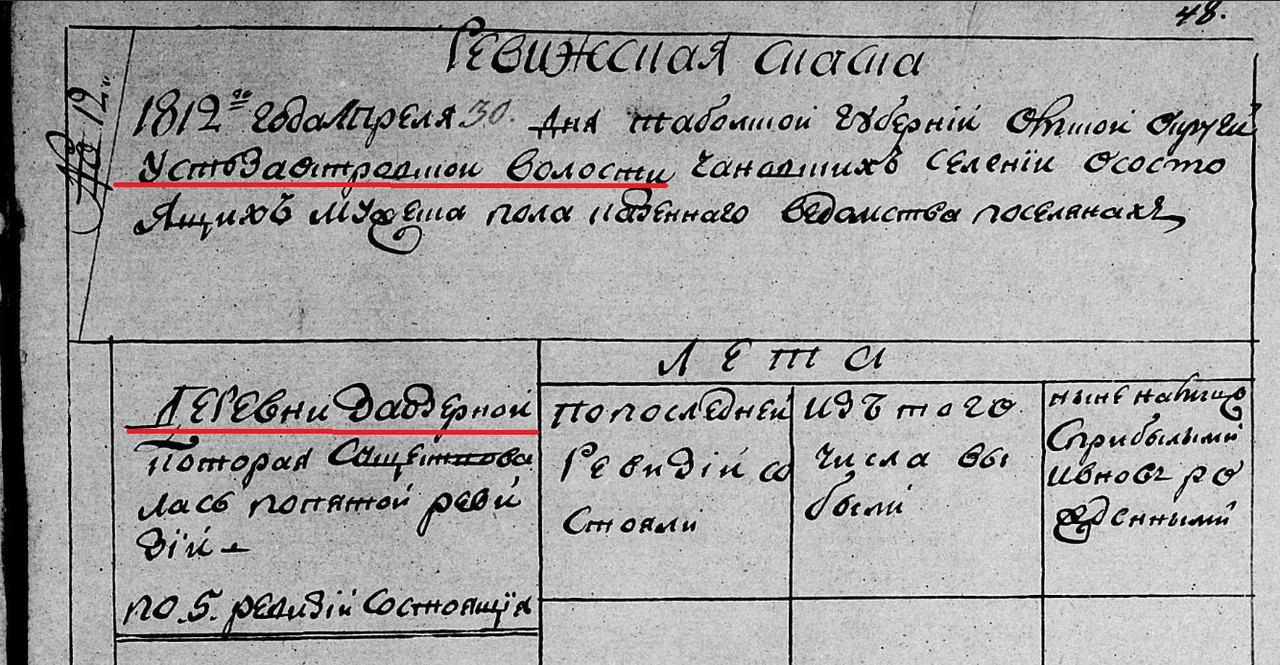 48.
№ 12.
Ревижская скаска
1812го года Апреля 30. дня табольской губернiи омской округи
Устьзаостровской волости находящихъ селенiи ососто
ящихъ мужеска пола казеннаго ведомства поселянахъ
Лета
Деревни Заозерной
которая Сощетова
лась попятой реви
зiй
по. 5. ревизiй Состоящiя
попоследней
Ревизiй со
стояли
изъ того
числа вы
были
ныне налицо
Сприбылыми
ивновь ро
жденными